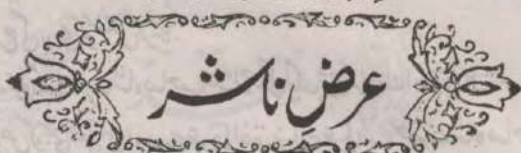 عرضِ ناشر